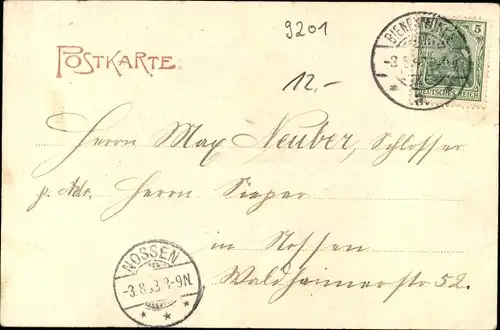 9201
5
DEUTSCHES REICH
POSTKARTE.
12.-
Herrn Max Neuber, Schlosser
p. Adr. Herrn Sieper
in Nossen
Waldheimerstr 52.
NOSSEN
-3.8.03 8-9N.